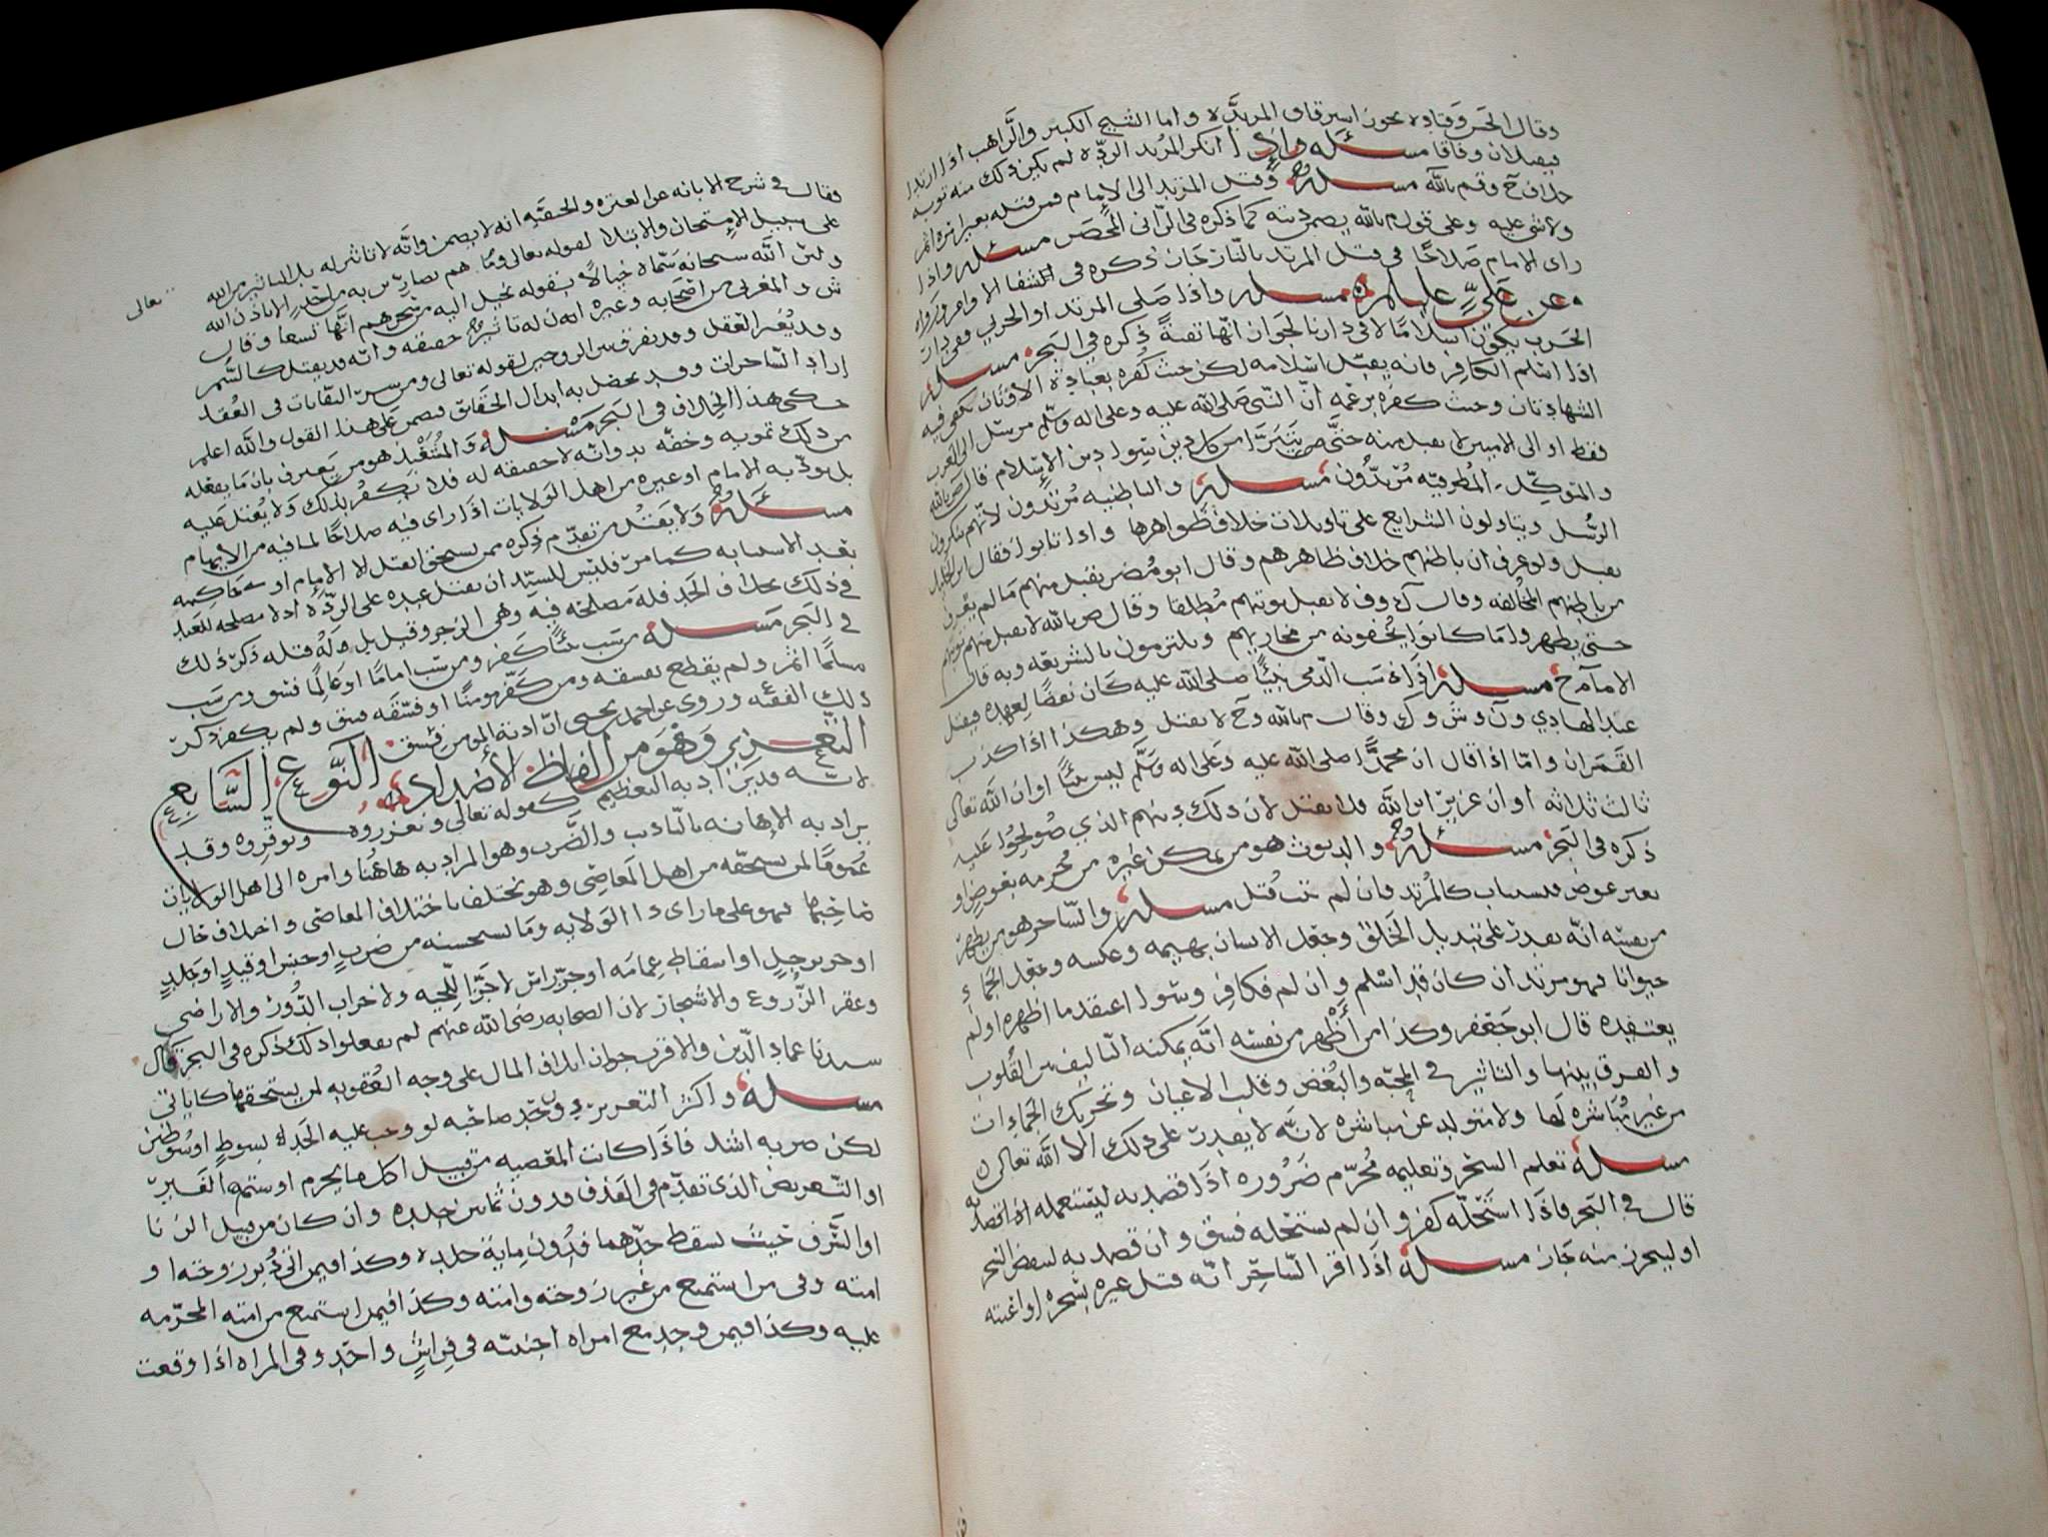 وقال الحسن وقتاده يجوز استرقاق المرتده واما الشيخ الكبير والراهب اذا ارتدا
فيقتلان وفاقا مسئله واذا انكر المرتد الردّه لم يكن ذلك منه توبه
خلاف ح وقم بالله مسئله وقتل المرتد الى الإمام فمن قتله بغير امره اثم
ولا شي عليه وعلى قول م بالله يضمن ديته كما ذكره في الزاني المحصن مسئله واذا
راى الامام صلاحًا في قتل المرتد بالنار جاز ذكره في الشفا
وعن عليّ عليلم مسئله واذا صلى المرتد او الحربي
الحرب يكون اسلامًا لا في دارنا لجواز انها تقيةً ذكره في البحر مسئله
اذا اسلم الكافر فانه يقبل اسلامه لكن حيث كفره بعبادة الاوثان يكفي فيه
الشهادتان وحيث كفره بزعمه انّ النبي صلى الله عليه وعلى اله وسلم مرسل الى العرب
فقط او الى الاميين لا يقبل منه حتى يتبرّا من كل دين سوا دين الإسلام قال
والمتوكل المُطرفيّه مُرتدُّون مسئله والباطنيه مُرتدون لانهم ينكرون
الرسُل ويتاولون الشرايع على تاويلات خلاف ظواهرها واذا تابوا فقال
يقبل ولو عرف ان باطنهم خلاف ظاهرهم وقال ابو مُضر يقبل منهم ما لم يعرف
من باطنهم المخالفه وقال ك وف لا يقبل توبتهم مُطلقا وقال م بالله لا يقبل منهم توبتهم
حتى يظهروا ما كانوا يُخفونه من مخازيهم ويلتزمون بالشريعه وبه قال
الامام ح مسئله اذا سَب الذمي نبيًّا صلى الله عليه كان نقضًا لعهده فيقتل
عند الهادي ون وش وك وقال م بالله وح لا يقتل وهكذا اذا كذب
القمران واما اذا قال ان محمدًا صلى الله عليه وعلى اله وسلّم ليس نبيًّا او ان الله تعالى
ثالث ثلاثه او ان عزيزٌ ابن الله فلا يقتل لان ذلك دينهم الذي صُولحُوا عليه
ذكره في البحر مسئله والديوث هو من يمكن غيره من محرمه بعوض او
بغير عوض فيستتاب كالمُرتد فان لم يتب قُتل مسئله والساحر هو من يظهر
من نفسه انه يقدر على تبديل الخلق وجعل الانسان بهيمه وعكسه وجعل الجماد
حيوانا فهو مرتد ان كان قد اسلم وان لم فكافر وسوا اعتقد ما اظهره او لم
يعتقده قال ابو جعفر وكذا من أظهر من نفسه انه يمكنه التاليف بين القلوب
والفرق بينها والتاثير في المحبّه والبُغض وقلب الاعيان وتحريك الجمادات
من غير مُباشره لها ولا متولد عن مباشره لانه لا يقدر على ذلك الا الله تعالى
مسئله تعلم السحر وتعليمه مُحرّم ضَروره اذا قصد به ليستعمله
قال في البحر فاذا استحلّه كفر وان لم يستحله فسق وان قصد به لنقض السحر
او ليحرز منه جاز مسئله اذا اقر الساحر انه قتل غيره بسحره او اعنته
فقال في شرح الابانه عن العتره والحنفيّه انه لا يضمن وانه لا تاثير له بل التاثير من الله
تعالى
على سبيل الامتحان والابتلا لقوله تعالى وما هم بضارّين به من احد الا باذن الله
ولان الله سبحانه سمّاه خيالاً بقوله يُخيل اليه من سحرهم انها تسعا وقال
ش والمغربي من اصحابه وغيره ان له تاثيرٌ حقيقه وانه قد يقتل كالسُّم
وقد يُغير العقل وقد يفرق بين الزوجين لقوله تعالى ومن شرّ النفاثات في العُقد
اراد الساحرات وقد يحصل به ابدال الحقائق فيضمن على هذا القول والله اعلم
حكى هذا الخلاف في البحر مسئله والمُشَعبِذ هو من يعترف بان ما يفعله
من ذلك تمويه وخفّه يد وانه لا حقيقه له فلا يكفر بذلك ولا يُقتل عليه
بل يؤدبه الامام او غيره من اهل الولايات اذا راى فيه صلاحًا لما فيه من الإيهام
مسئله ولا يقتل من تقدّم ذكره ممن يستحق القتل الا الإمام او حاكمه
بعد الاستتابه كما مرّ فليس للسيّد ان يقتل عبده على الردّه اذ لا مصلحه للعبد
في ذلك بخلاف الحد فله مصلحه فيه وهي الزجر وقيل بل وله قتله ذكر ذلك
في البحر مسئله من سَب نبيًّا كفر ومن سب امامًا او عالمًا فسق ومن سَب
مسلمًا اثم ولم يقطع بفسقه ومن كفّر مومنًا او فسّقه فسق ولم يكفر ذكر
ذلك الفقيه وروي عن احمد بن يحيى انّ اذية المومن فسق النَّوع السّابع
التعزير وهو من الفاظ الأضداد
لانّه قد يراد به التعظيم كقوله تعالى وتعزروه وتوقّروه وقد
يراد به الإهانه بالتاديب والضّرب وهو المراد به هاهُنا وامره الى اهل الولايات
عُمومًا لمن يستحقه من اهل المعاصي وهو يختلف باختلاف المعاصي واختلاف حال
صاحبها فهو على ما راى ذا الولايه وما يستحسنه من ضربٍ او حبس او قيدٍ او جلدٍ
او اسقاط عمامه او جزّ راس لا جزّ اللحيه ولا خراب الدُّور والاراضي
وعقر الزروع والاشجار لان الصحابه رضي الله عنهم لم يفعلوا ذلك ذكره في البحر قال
سيدنا عماد الدّين والاقرب جواز اتلاف المال على وجه العُقوبه لمن يستحقها كما ياتي
مسئله واكثر التعزير دون حدّ صاحبه لو وجب عليه الحد بسوطٍ او سُوطين
لكن ضربه اشد فاذا كانت المعصيه من قبيل اكل ما يحرم او شتم الغير
او التعريض الذي تقدّم في القذف فدون ثمانين جلده وان كان من قبيل الزنا
او السّرق حيث يسقط حدّهما فدُون ماية جلده وكذا فيمن اتى دُبر زوجته او
امته وفي من استمتع من غير زوجته وامته وكذا فيمن استمتع من امته المحرّمه
عليه وكذا فيمن وجد مع امراه اجنبيّه في فراشٍ واحدٍ وفي المراه اذا وقعت